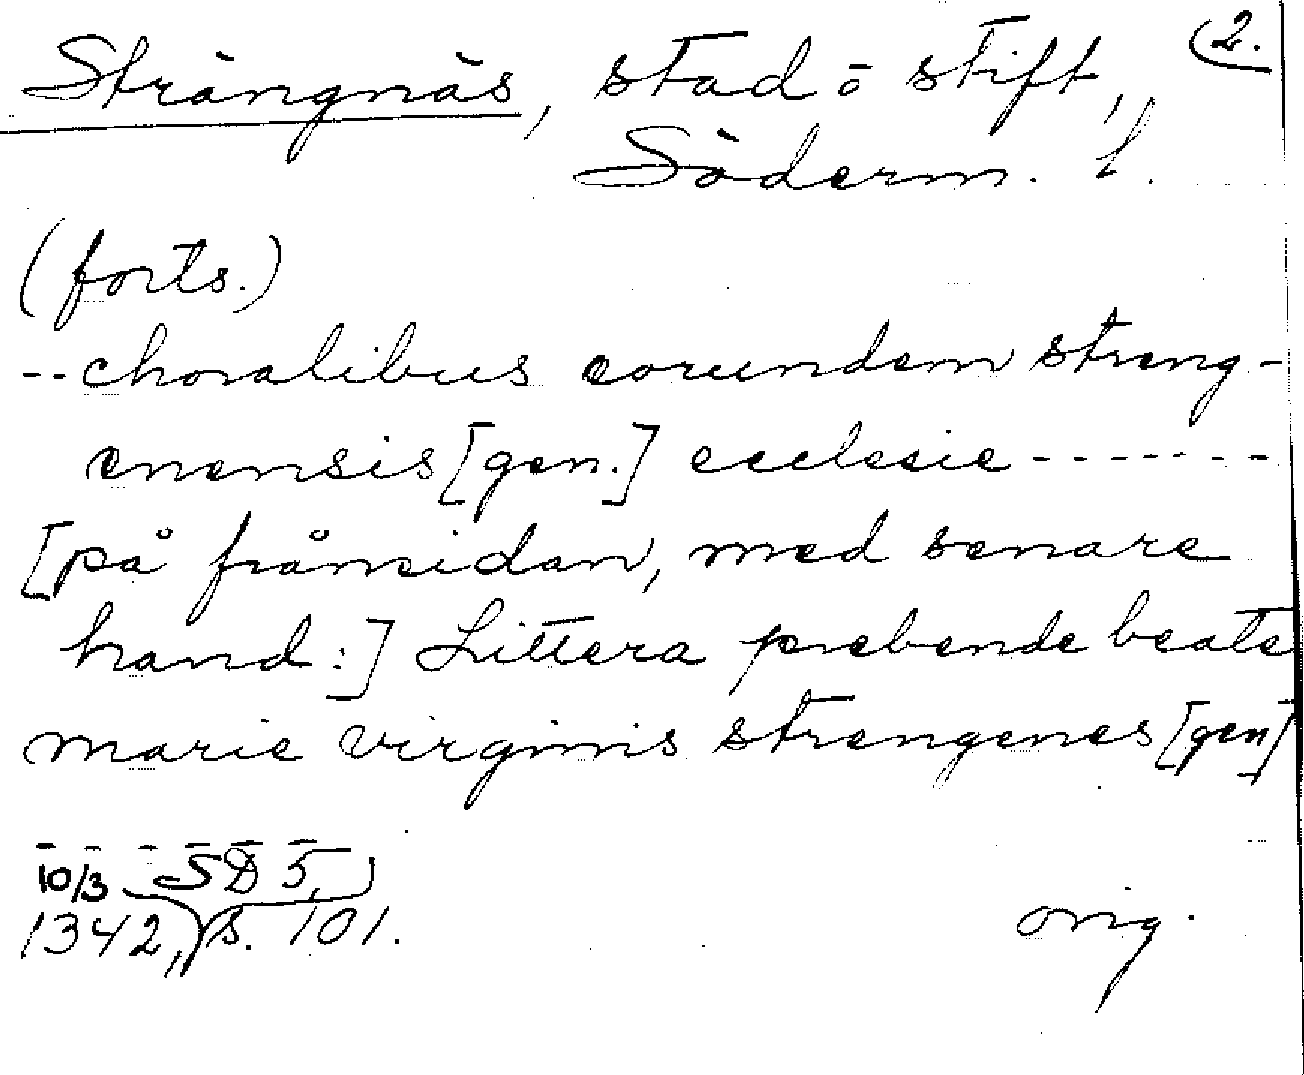 Strängnäs, stad o stift, (2.
Söderm. l.
(forts.)
-- choralibus eorundem streng-
enensis [gen.] ecclesie -------
[på frånsidan, med senare
hand:] Littera prebende beate
marie virginis strengenes [gen]
- - - - - -
10/3 SD 5,
1342, s. 101.
orig.